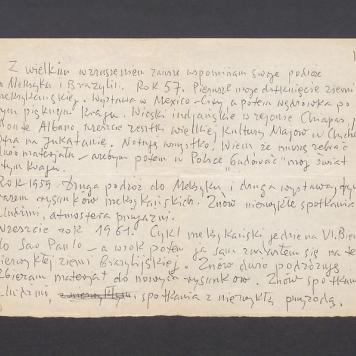 Z wielkim wzruszeniem zawsze wspominam swoje podróże
do Meksyku i Brazylii. Rok 57. Pierwsze moje dotknięcie ziemi
meksykańskiej. Wystawa w Mexico-City a potem wędrówka po
tym pięknym kraju. Wioski indyjańskie w rejonie Chiapas,
Monte Albano, wreszcie resztki wielkiej kultury Majów w
na Jukatanie. Notuję wszystko. Wiem że muszę zebrać
dużo materiału - abym potem w Polsce "budować" mój świat
tym kraju.
Rok 1959. Druga podróż do Meksyku i druga wystawa
razem rysunków meksykańskich. Znów niezwykłe spotkania
z ludźmi, atmosfera przyjaźni.
Wreszcie rok 1961. Cykl meksykański jedzie na VI. Bie
do Sao Paulo - a w rok potem ja sam znalazłem się na te
niezwykłej ziemi Brazylijskiej. Znów dużo podróżuję
zbieram materiał do nowych rysunków. Znów spotkan
z ludźmi, spotkania z niezwykłą przyrodą.